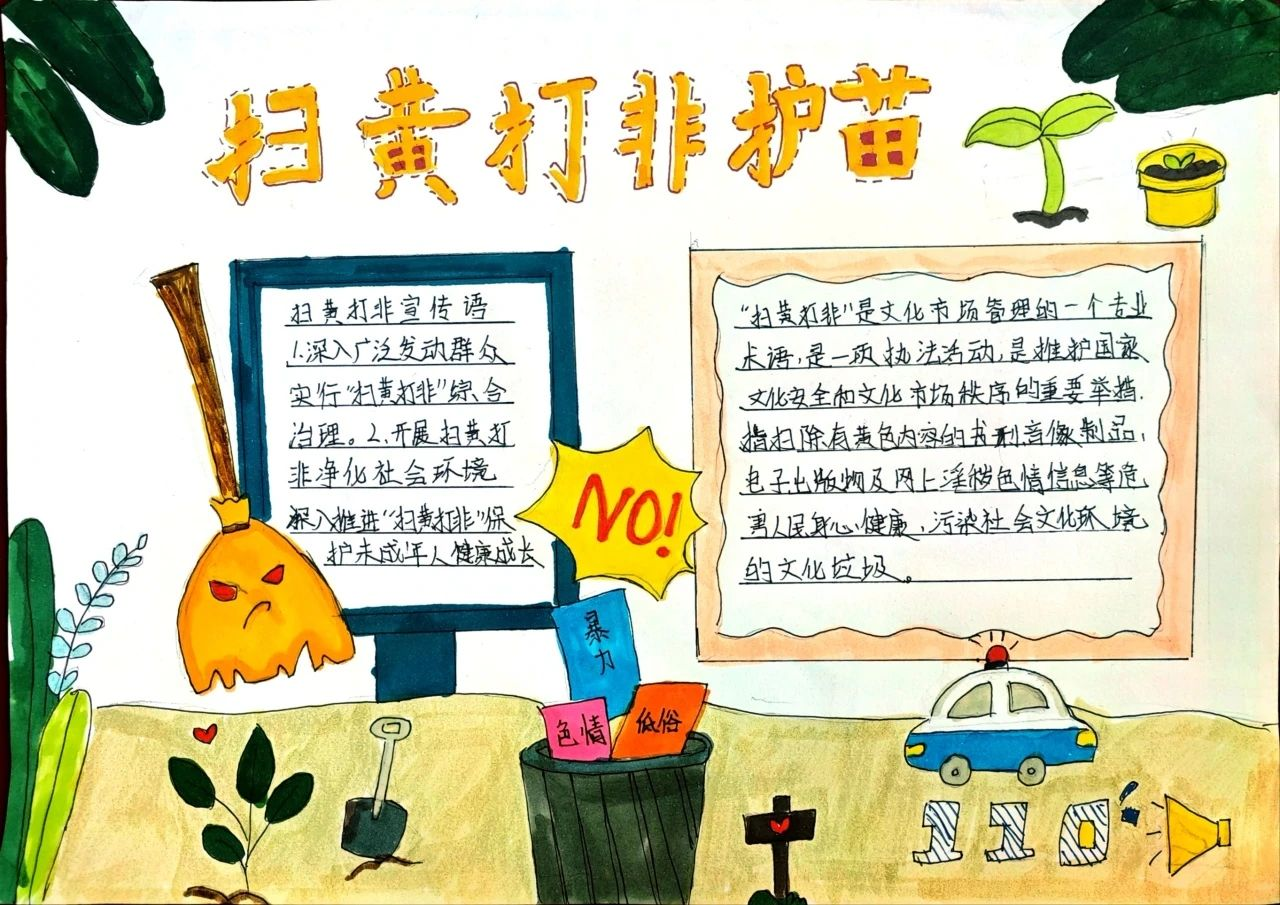 扫黄打非护苗
扫黄打非宣传语
1.深入广泛发动群众
实行“扫黄打非”综合
治理。2.开展扫黄打
非净化社会环境
深入推进“扫黄打非”保
护未成年人健康成长
NO!
“扫黄打非”是文化市场管理的一个专业
术语,是一项执法活动,是维护国家
文化安全和文化市场秩序的重要举措.
指扫除有黄色内容的书刊音像制品,
电子出版物及网上淫秽色情信息等危
害人民身心健康,污染社会文化环境
的文化垃圾。
暴
力
色情
低俗
110